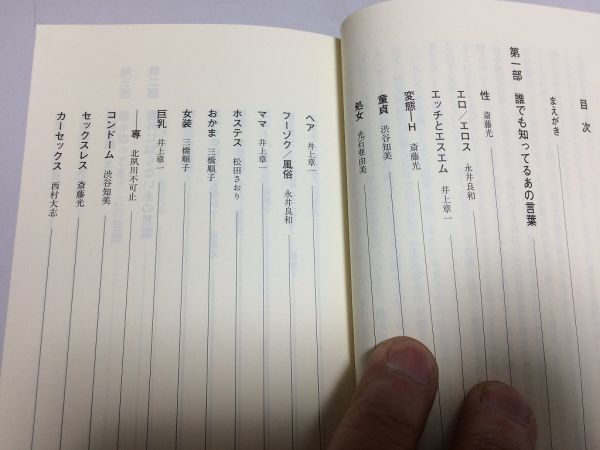 目次
まえがき
第一部 誰でも知ってるあの言葉
性 斎藤光
エロ／エロス 永井良和
エッチとエスエム 井上章一
変態―H 斎藤光
童貞 渋谷知美
処女 光石亜由美
ヘア 井上章一
フーゾク／風俗 永井良和
ママ 井上章一
ホステス 松田さおり
おかま 三橋順子
女装 三橋順子
巨乳 井上章一
――専 北夙川不可止
コンドーム 渋谷知美
セックスレス 斎藤光
カーセックス 西村大志